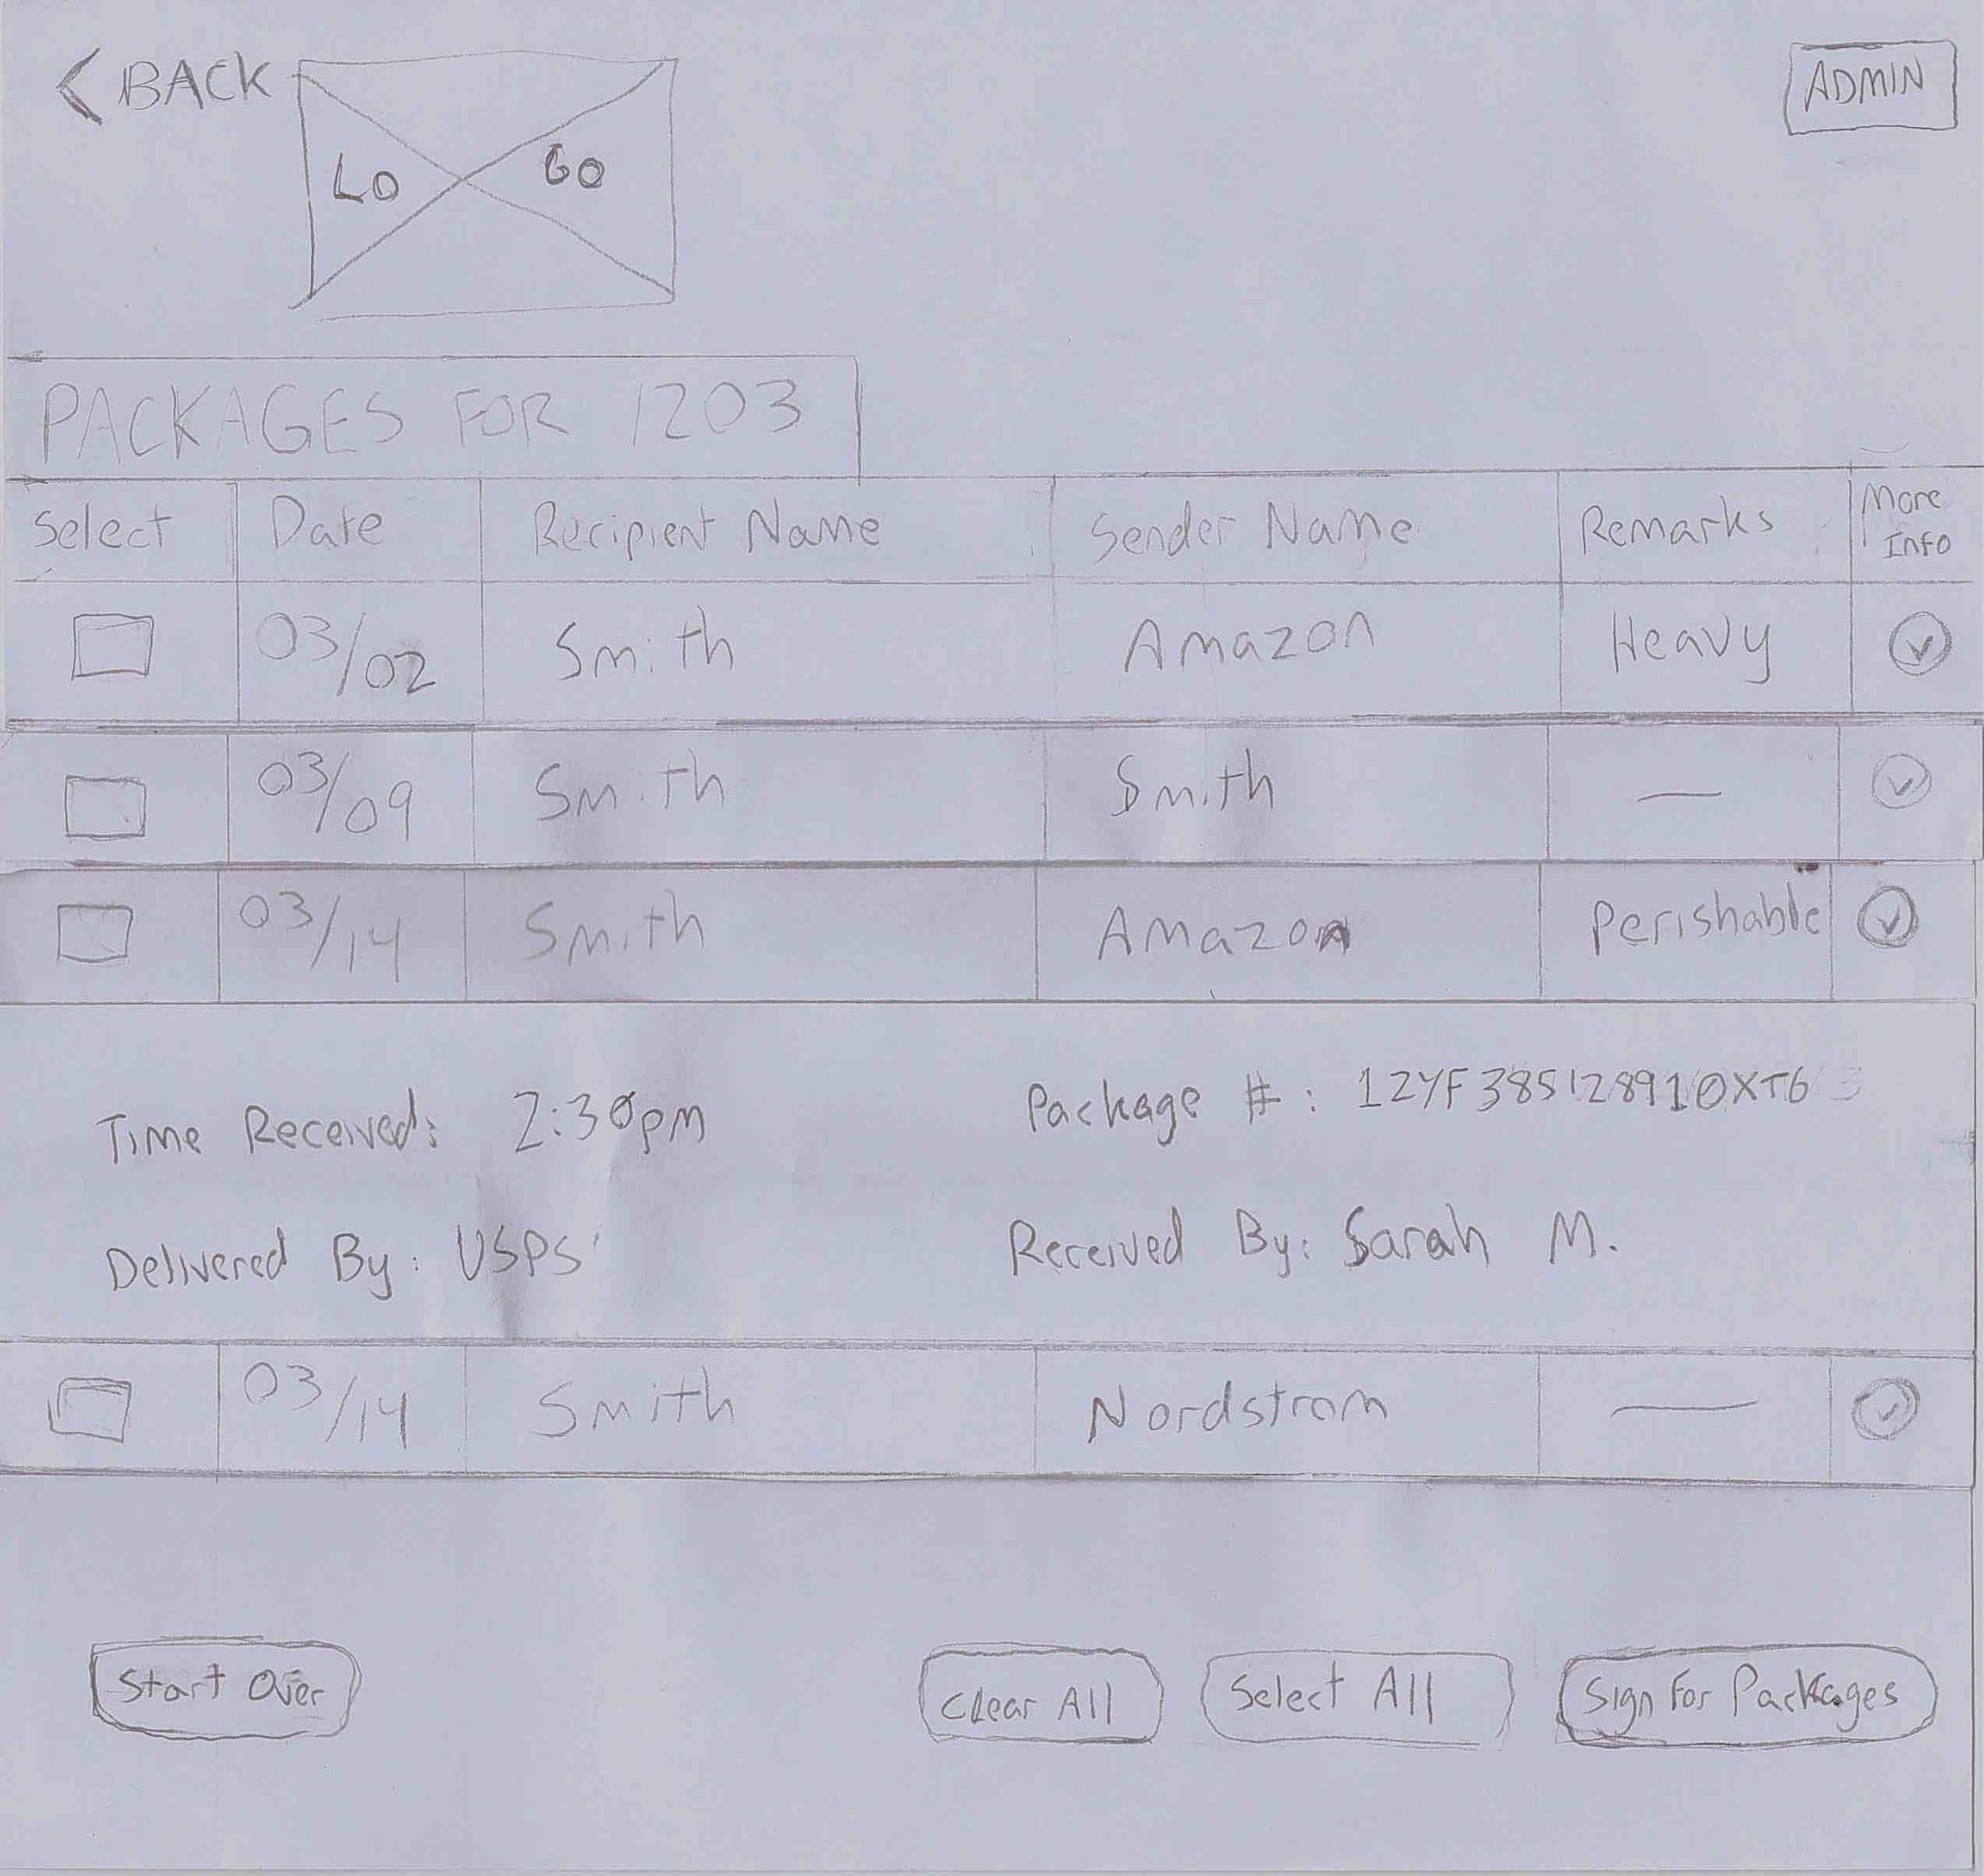 < BACK
LO GO
ADMIN
PACKAGES FOR 1203
Select Date Recipient Name Sender Name Remarks More Info
03/02 Smith Amazon Heavy
03/09 Smith Smith —
03/14 Smith Amazon Perishable
Time Received: 2:30pm Package #: 12YF385128910XT63
Delivered By: USPS Received By: Sarah M.
03/14 Smith Nordstrom —
Start Over Clear All Select All Sign For Packages